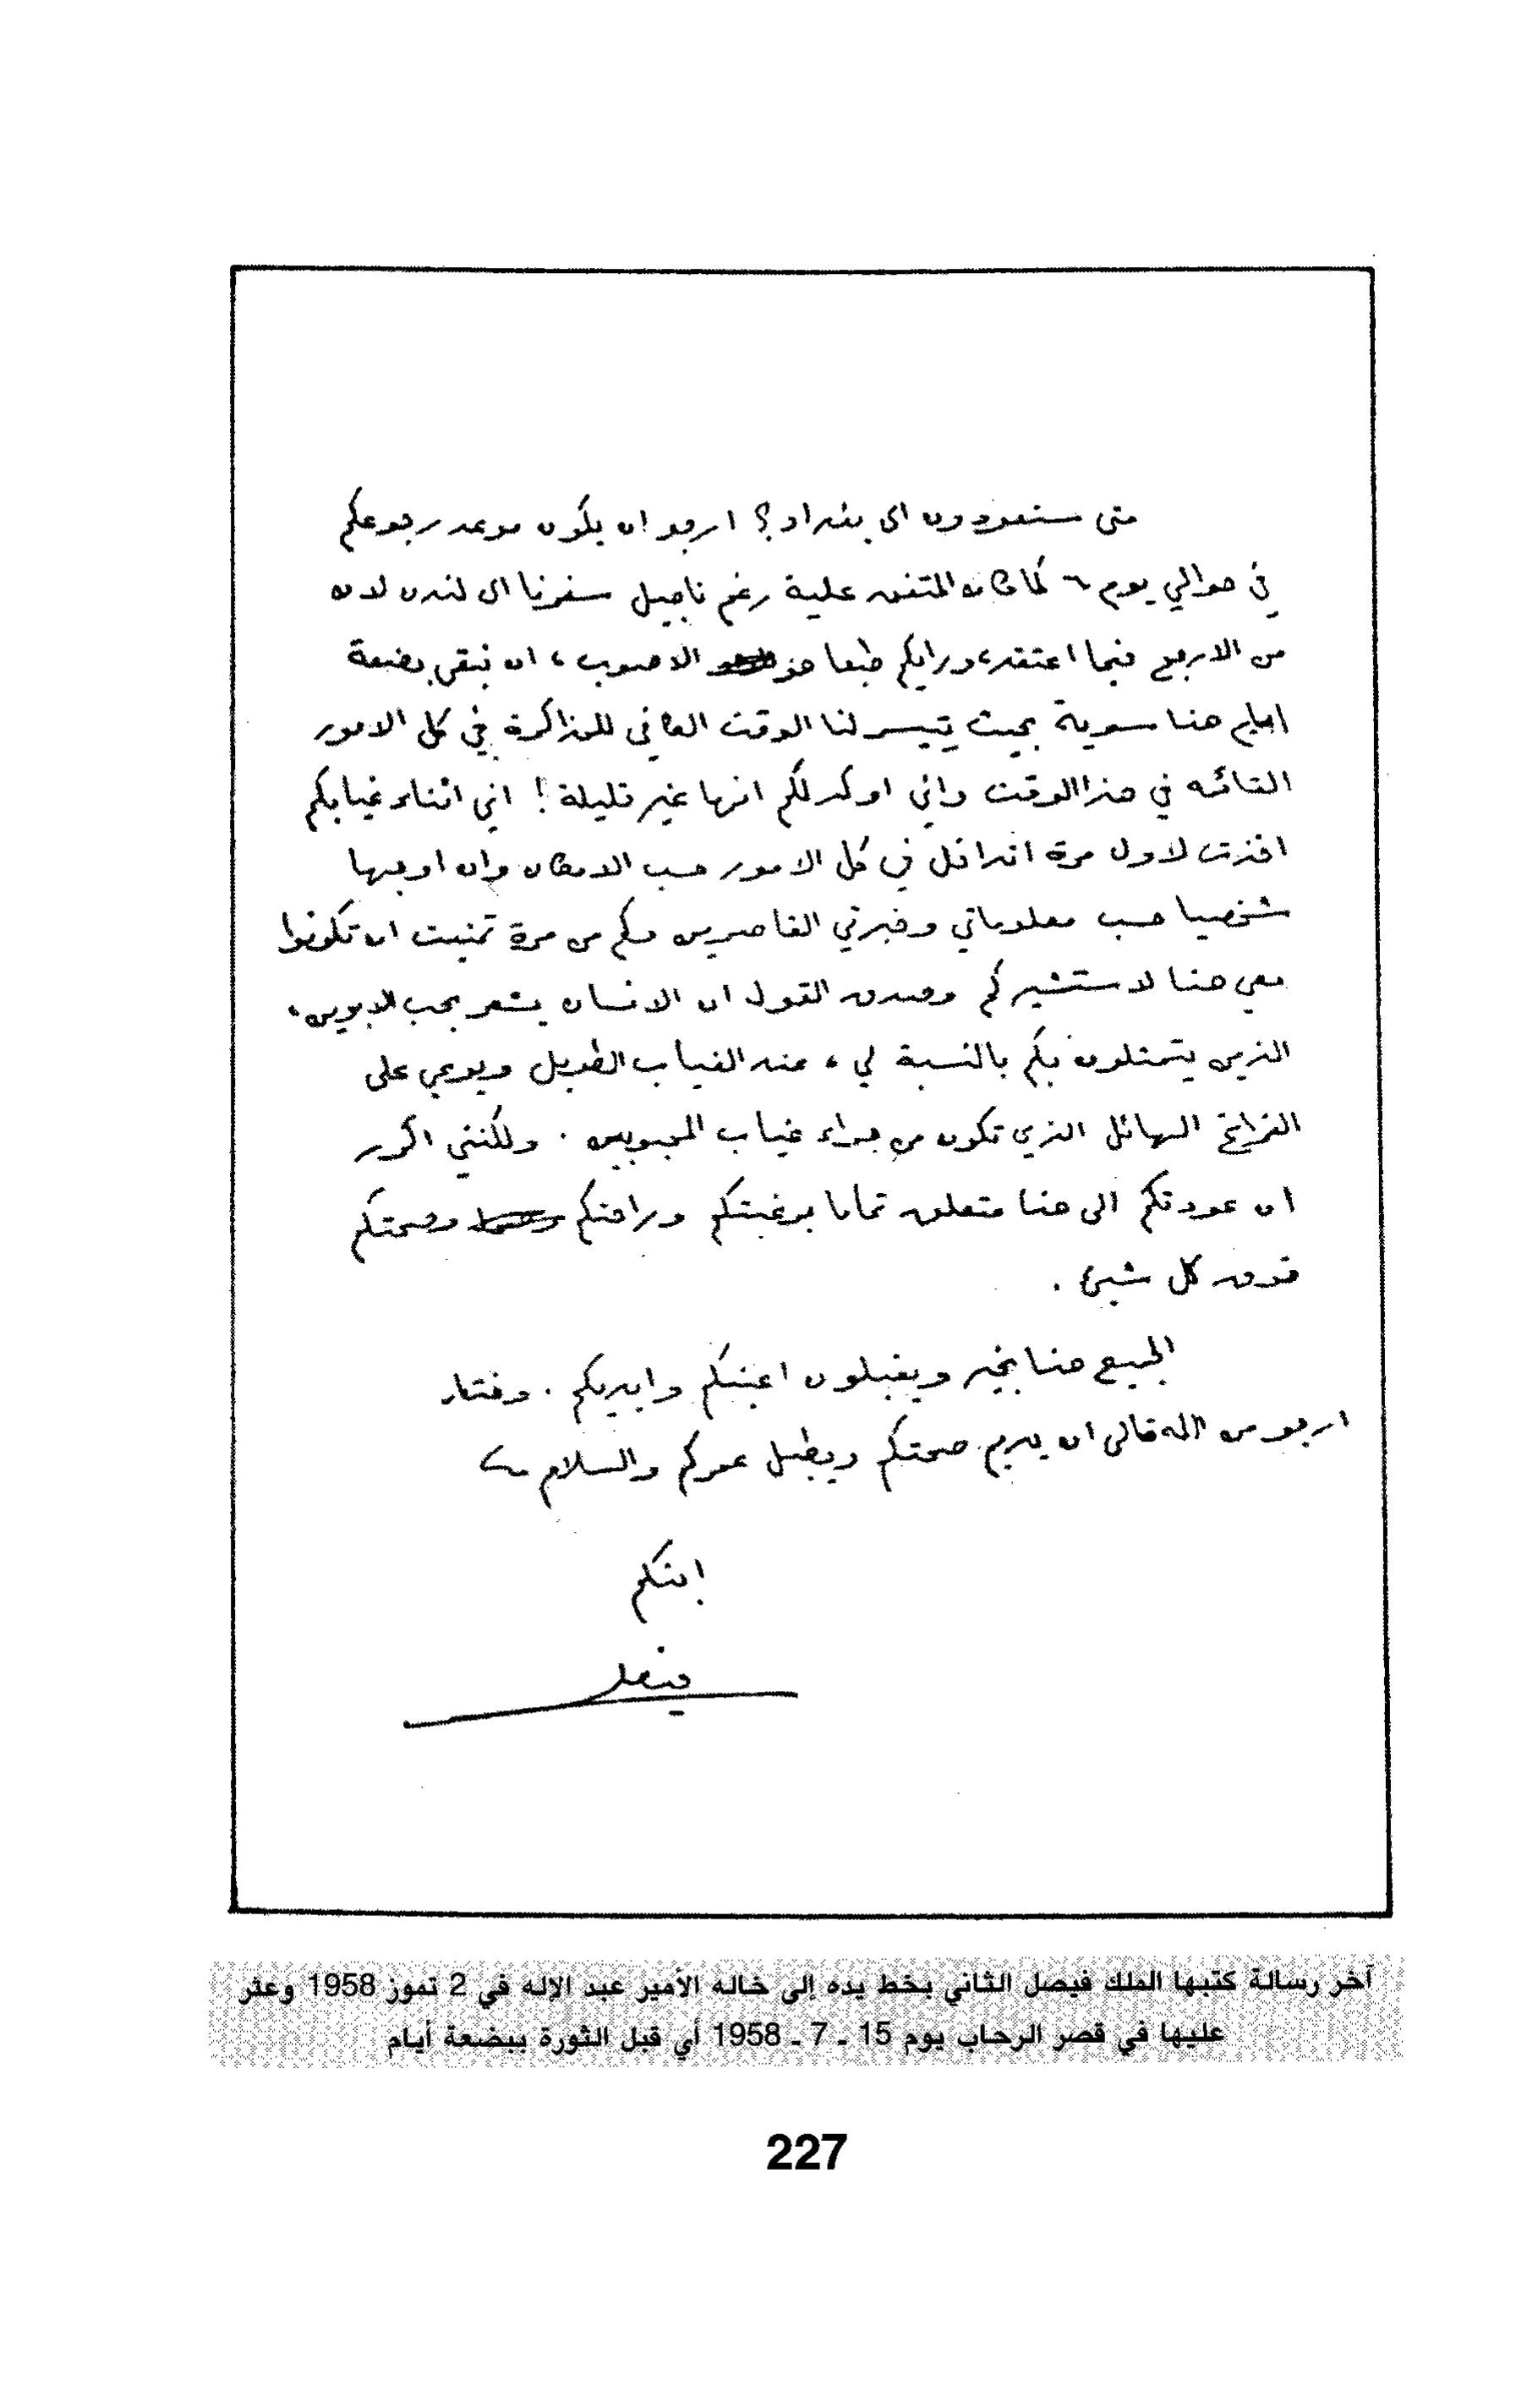 متى ستعودون الى بغداد؟ ارجو ان يكون موعد رجوعكم
في حوالي يوم ٦ كما كان المتفق علية رغم تاجيل سفرنا الى لندن لان
من الارجح فيما اعتقد، ورايكم طبعا هو الاصوب، ان نبقى بضعة
ايام هنا سوية بحيث يتيسر لنا الوقت الكافي للمذاكرة في كل الامور
القائمه في هذا الوقت واني اوكد لكم انها غير قليلة! اني اثناء غيابكم
اخذت لاول مرة اتداخل في كل الامور حسب الامكان وان اوجهها
شخصيا حسب معلوماتي وخبرتي القاصرين وكم من مرة تمنيت ان تكونوا
معي هنا لاستشيركم وصدق القول ان الانسان يشعر بحب الابوين،
الذين يتمثلون بكم بالنسبة لي، عند الغياب الطويل ويوعي على
الفراغ الهائل الذي تكون من جراء غياب المحبوبين. ولكنني اكرر
ان عودتكم الى هنا متعلق تماما برغبتكم وراحتكم وصحتكم
فوق كل شيئ.
الجميع هنا بخير ويقبلون اعينكم وايديكم. وختاما
ارجو من الله تعالى ان يديم صحتكم ويطيل عمركم والسلام
ابنكم
فيصل
آخر رسالة كتبها الملك فيصل الثاني بخط يده إلى خاله الأمير عبد الإله في 2 تموز 1958 وعثر
عليها في قصر الرحاب يوم 15 ـ 7 ـ 1958 أي قبل الثورة ببضعة أيام
227